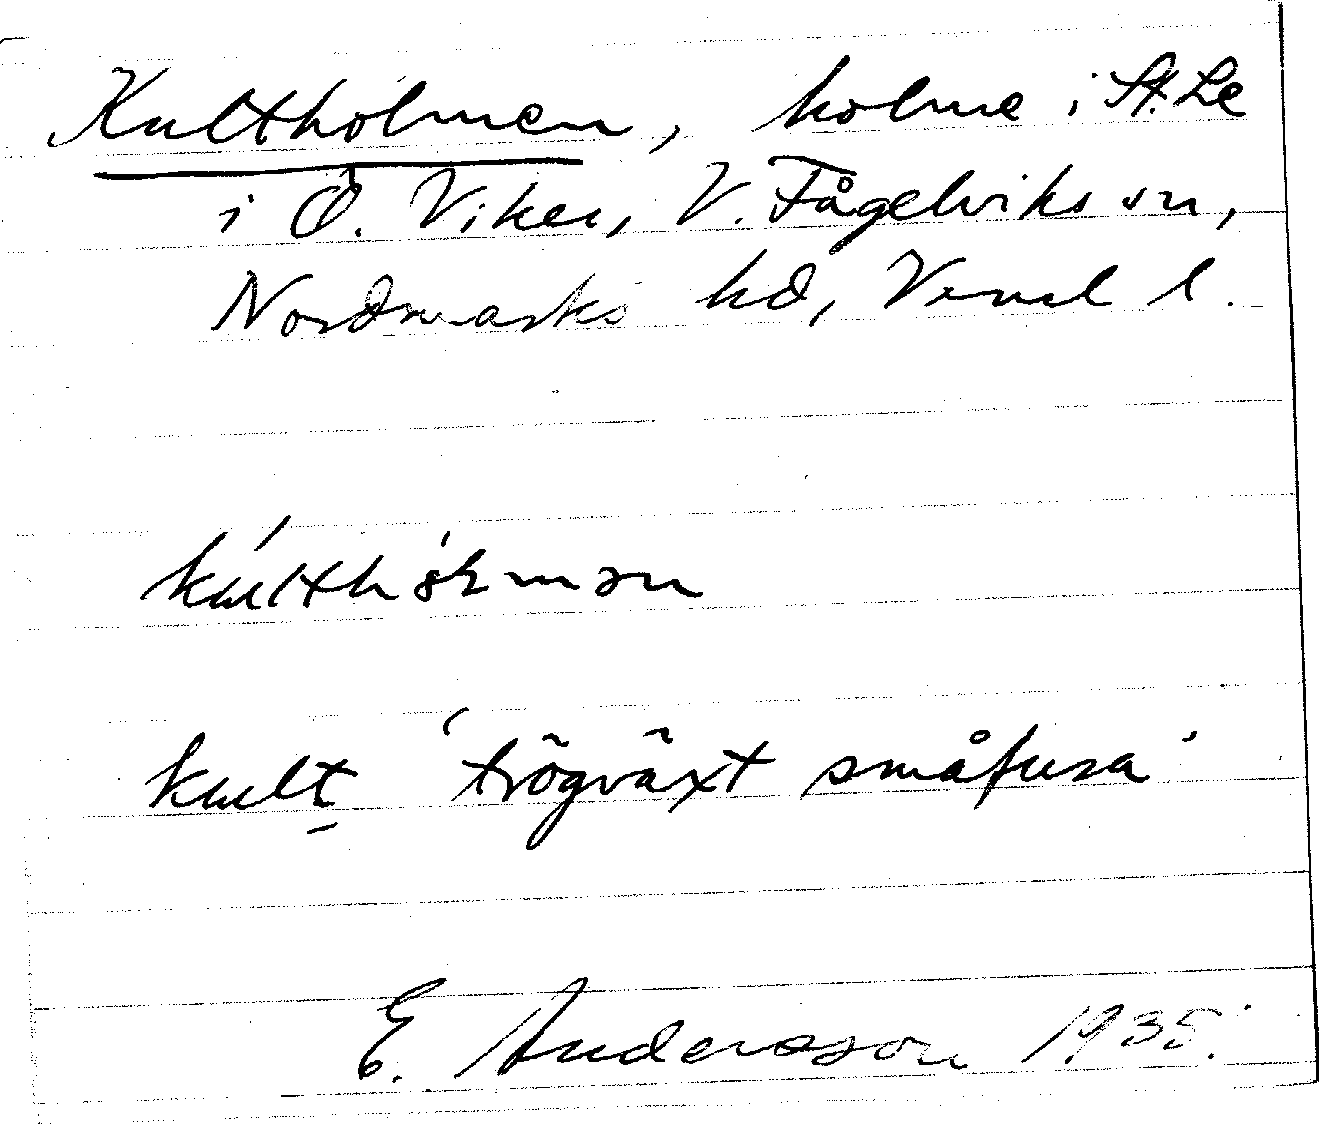 Kultholmen, holme i St. Le
i Ö. Viken, V. Fågelviks sn,
Nordmarks hd, Verml l.
kult 'trögväxt småfura'
E. Andersson 1935.